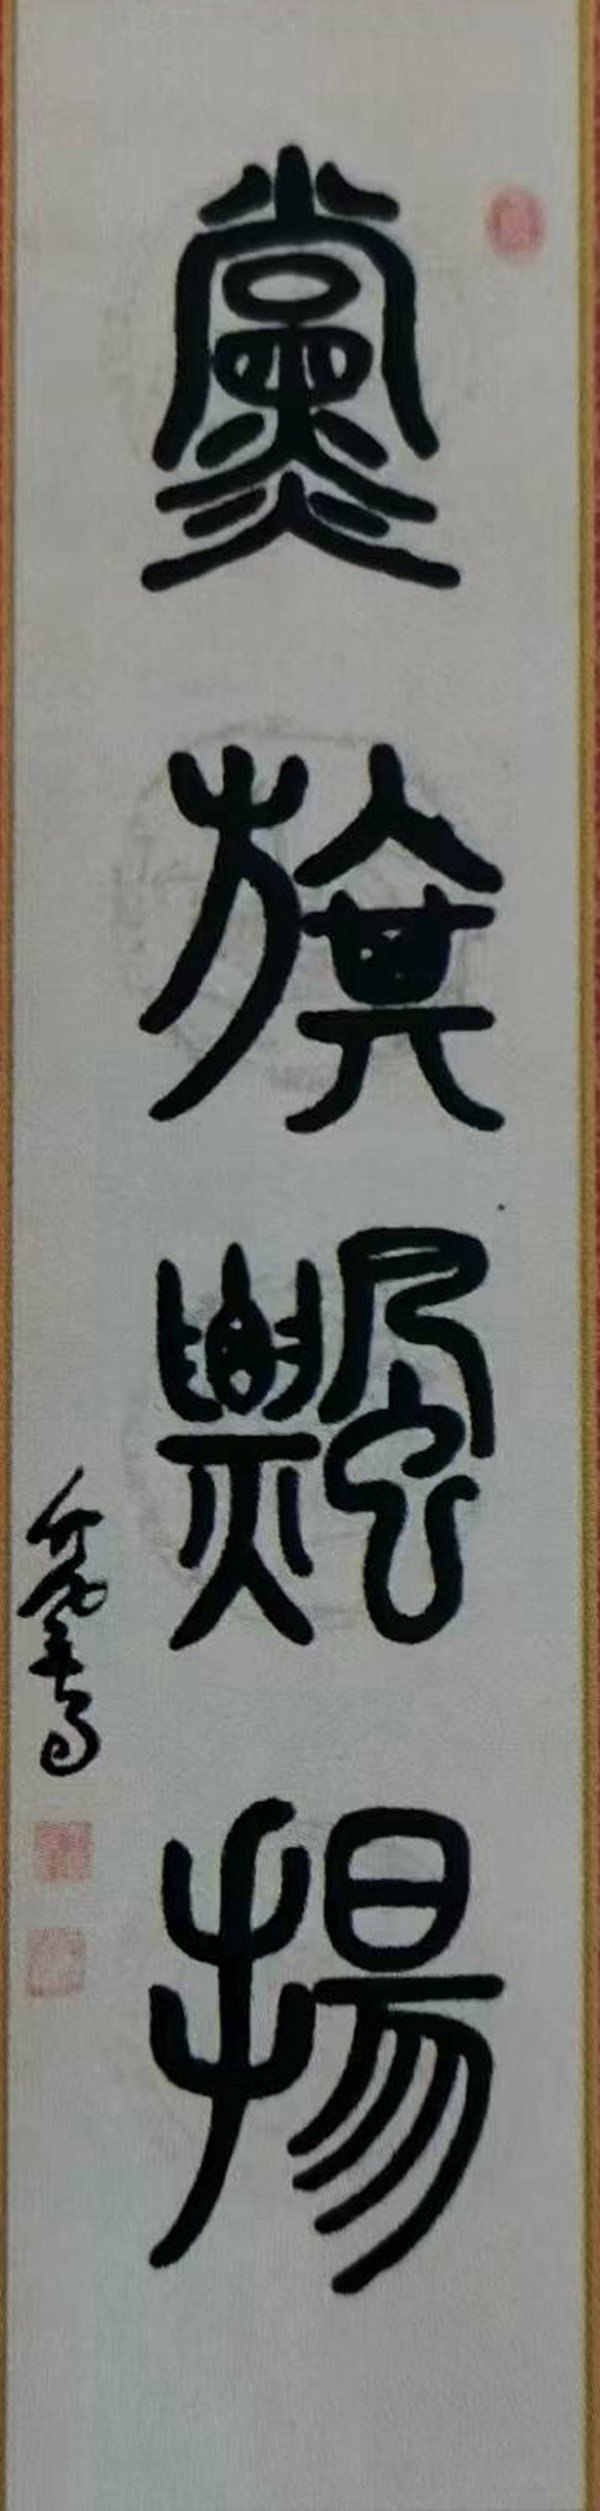 黨旗飄揚